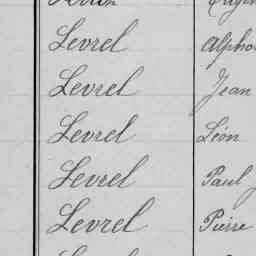 Levrel Alpho
Levrel Jean
Levrel Léon
Levrel Paul J
Levrel Pierre